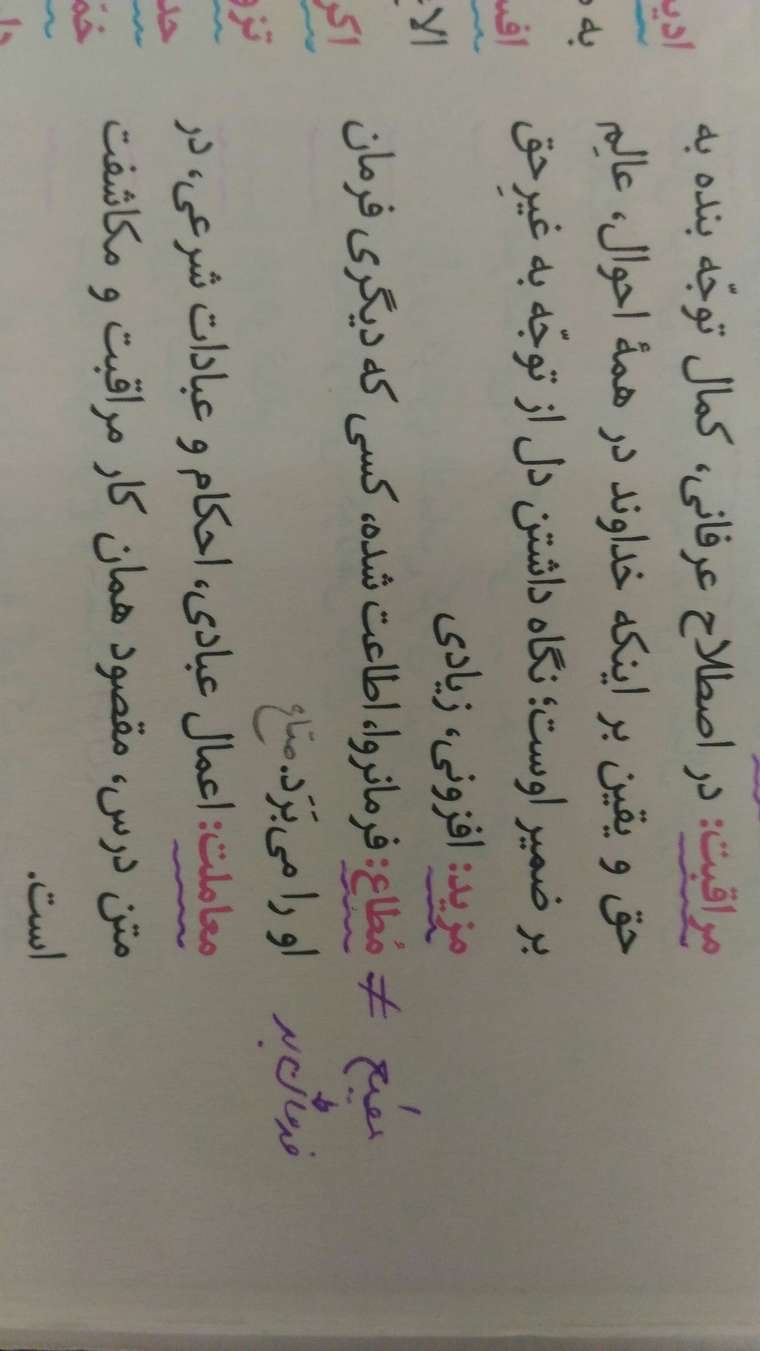 مراقبت: در اصطلاح عرفانی، کمال توجّه بنده به
حق و یقین بر اینکه خداوند در همهٔ احوال، عالِم
بر ضمیر اوست؛ نگاه داشتن دل از توجّه به غیرِ حق
مزید: افزونی، زیادی
مُطاع: فرمانروا، اطاعت شده، کسی که دیگری فرمان
≠ مُطیع
او را می‌بَرَد.
فرمان بر
معاملت: اعمال عبادی، احکام و عبادات شرعی، در
متن درس، مقصود همان کار مراقبت و مکاشفت
است.
ادی
به
افس
الا
اکر
تزو
حد